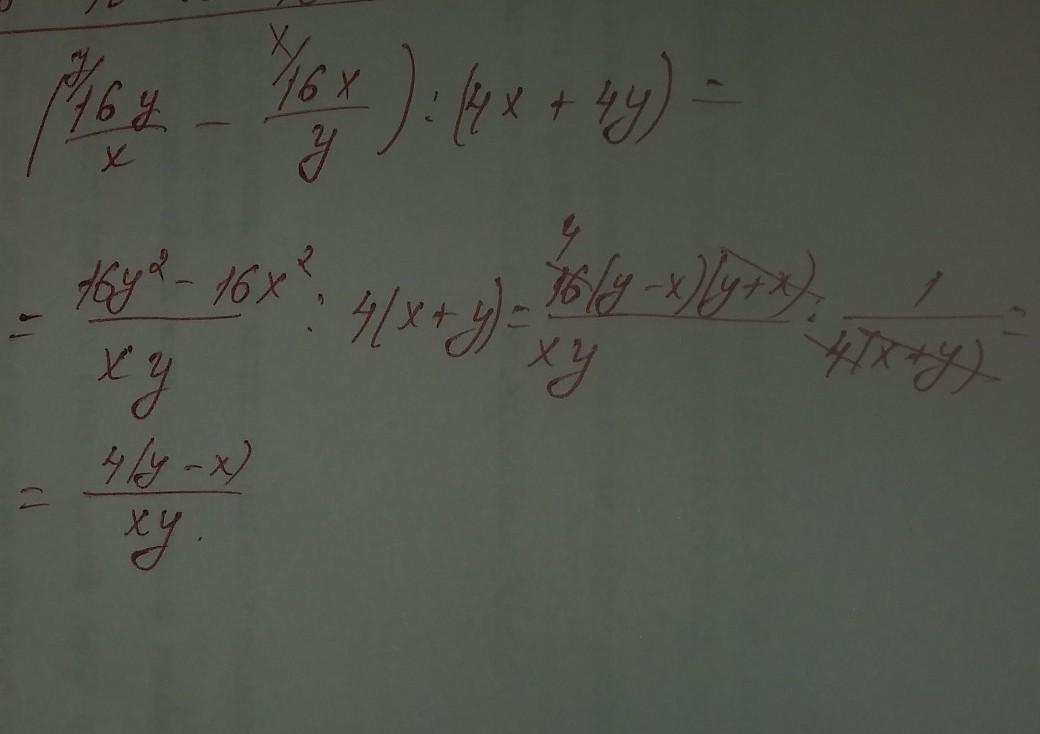 (y/16y/x - x/16x/y) : (4x + 4y) =
= 16y² - 16x² / xy : 4(x + y) = 4 16(y - x)(y + x) / xy : 1 / 4(x + y) =
= 4(y - x) / xy.